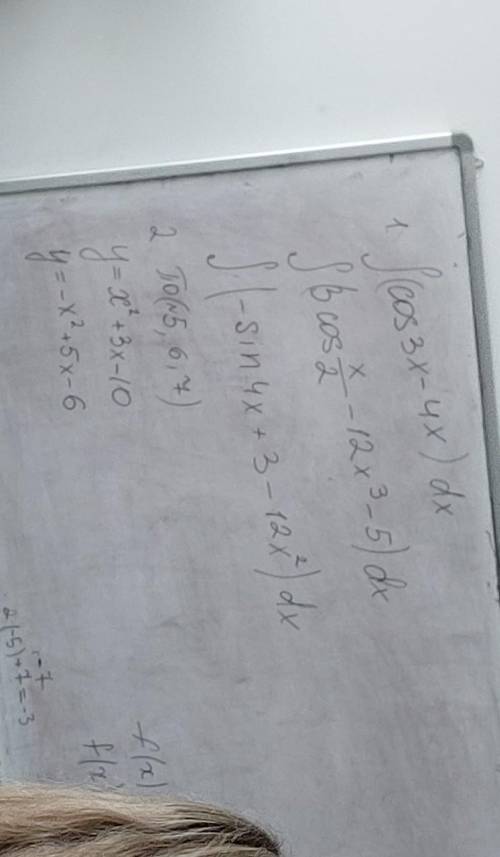 1. ∫(cos3x-4x)dx
∫(6 cos x/2 - 12x³ - 5)dx
∫(-sin4x + 3 - 12x²)dx
2 (№5, 6, 7)
y = x² + 3x - 10
y = -x² + 5x - 6
f(x)
f(x
-7
2(-5)+7=-3